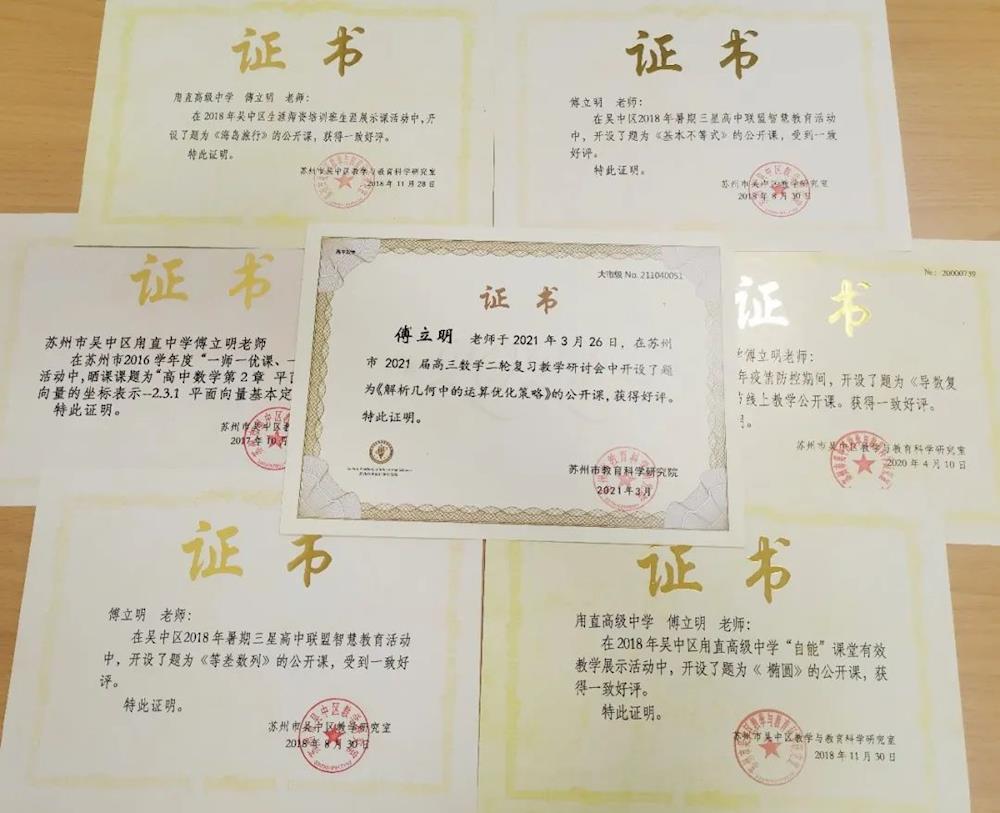 证书
甪直高级中学 傅立明 老师：
在2018年吴中区生涯师资培训班生涯展示课活动中，开
设了题为《海岛旅行》的公开课，获得一致好评。
特此证明。
苏州市吴中区教学与教育科学研究室
2018年11月28日
证书
傅立明 老师：
在吴中区2018年暑期三星高中联盟智慧教育活动
中，开设了题为《基本不等式》的公开课，受到一致
好评。
特此证明。
苏州市吴中区教学研究室
2018年8月30日
证书
苏州市吴中区甪直中学傅立明老师
在苏州市2016学年度“一师一优课、一
活动中，晒课课题为“高中数学第2章 平
向量的坐标表示--2.3.1 平面向量基本定
特此证明。
苏州市吴中区教
2017年10月
大市级 No.211040051
证书
傅立明 老师于2021年3月26日，在苏州
市2021届高三数学二轮复习教学研讨会中开设了题
为《解析几何中的运算优化策略》的公开课，获得好评。
特此证明。
苏州市教育科学研究院
2021年3月
№：20000739
证书
傅立明老师：
年疫情防控期间，开设了题为《导数复
线上教学公开课。获得一致好评。
苏州市吴中区教学与教育科学研究室
2020年4月10日
证书
傅立明 老师：
在吴中区2018年暑期三星高中联盟智慧教育活动
中，开设了题为《等差数列》的公开课，受到一致好
评。
特此证明。
苏州市吴中区教学研究室
2018年8月30日
证书
甪直高级中学 傅立明 老师：
在2018年吴中区甪直高级中学“自能”课堂有效
教学展示活动中，开设了题为《椭圆》的公开课，获
得一致好评。
特此证明。
苏州市吴中区教学与教育科学研究室
2018年11月30日